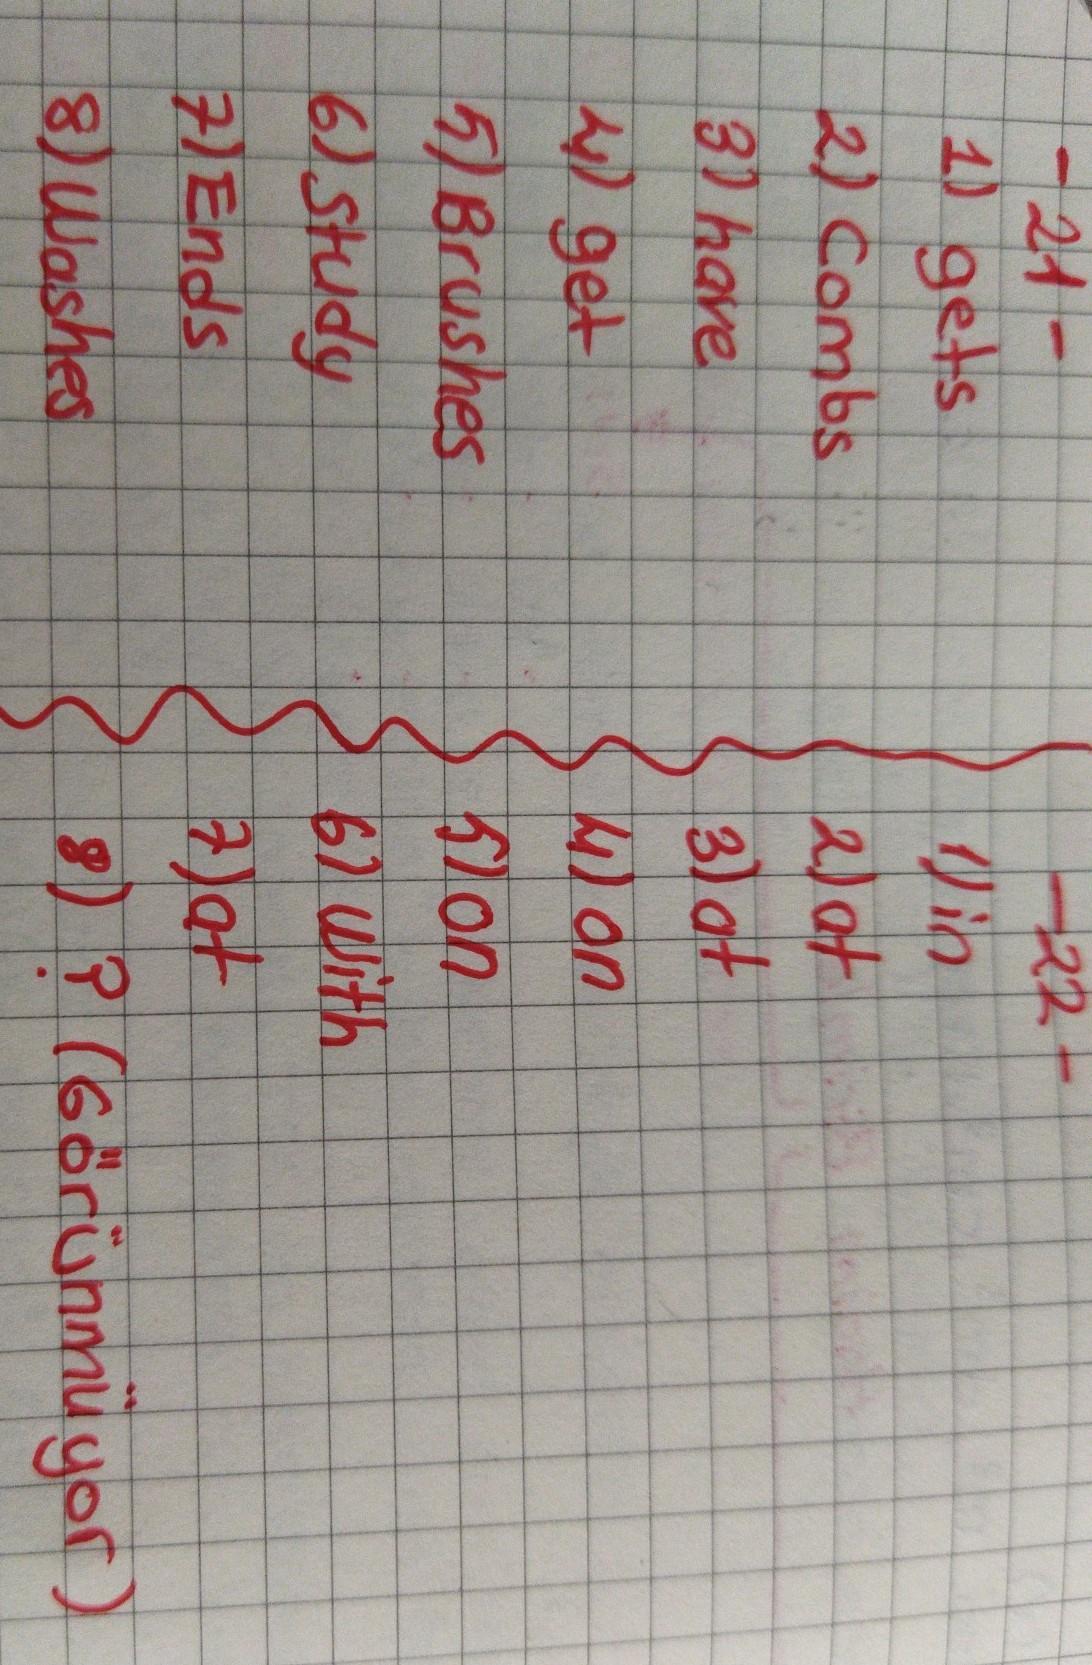 - 21 -
1) gets
2) Combs
3) have
4) get
5) Brushes
6) study
7) Ends
8) Washes
- 22 -
1) in
2) at
3) at
4) on
5) on
6) with
7) at
8) ? (Görünmüyor)